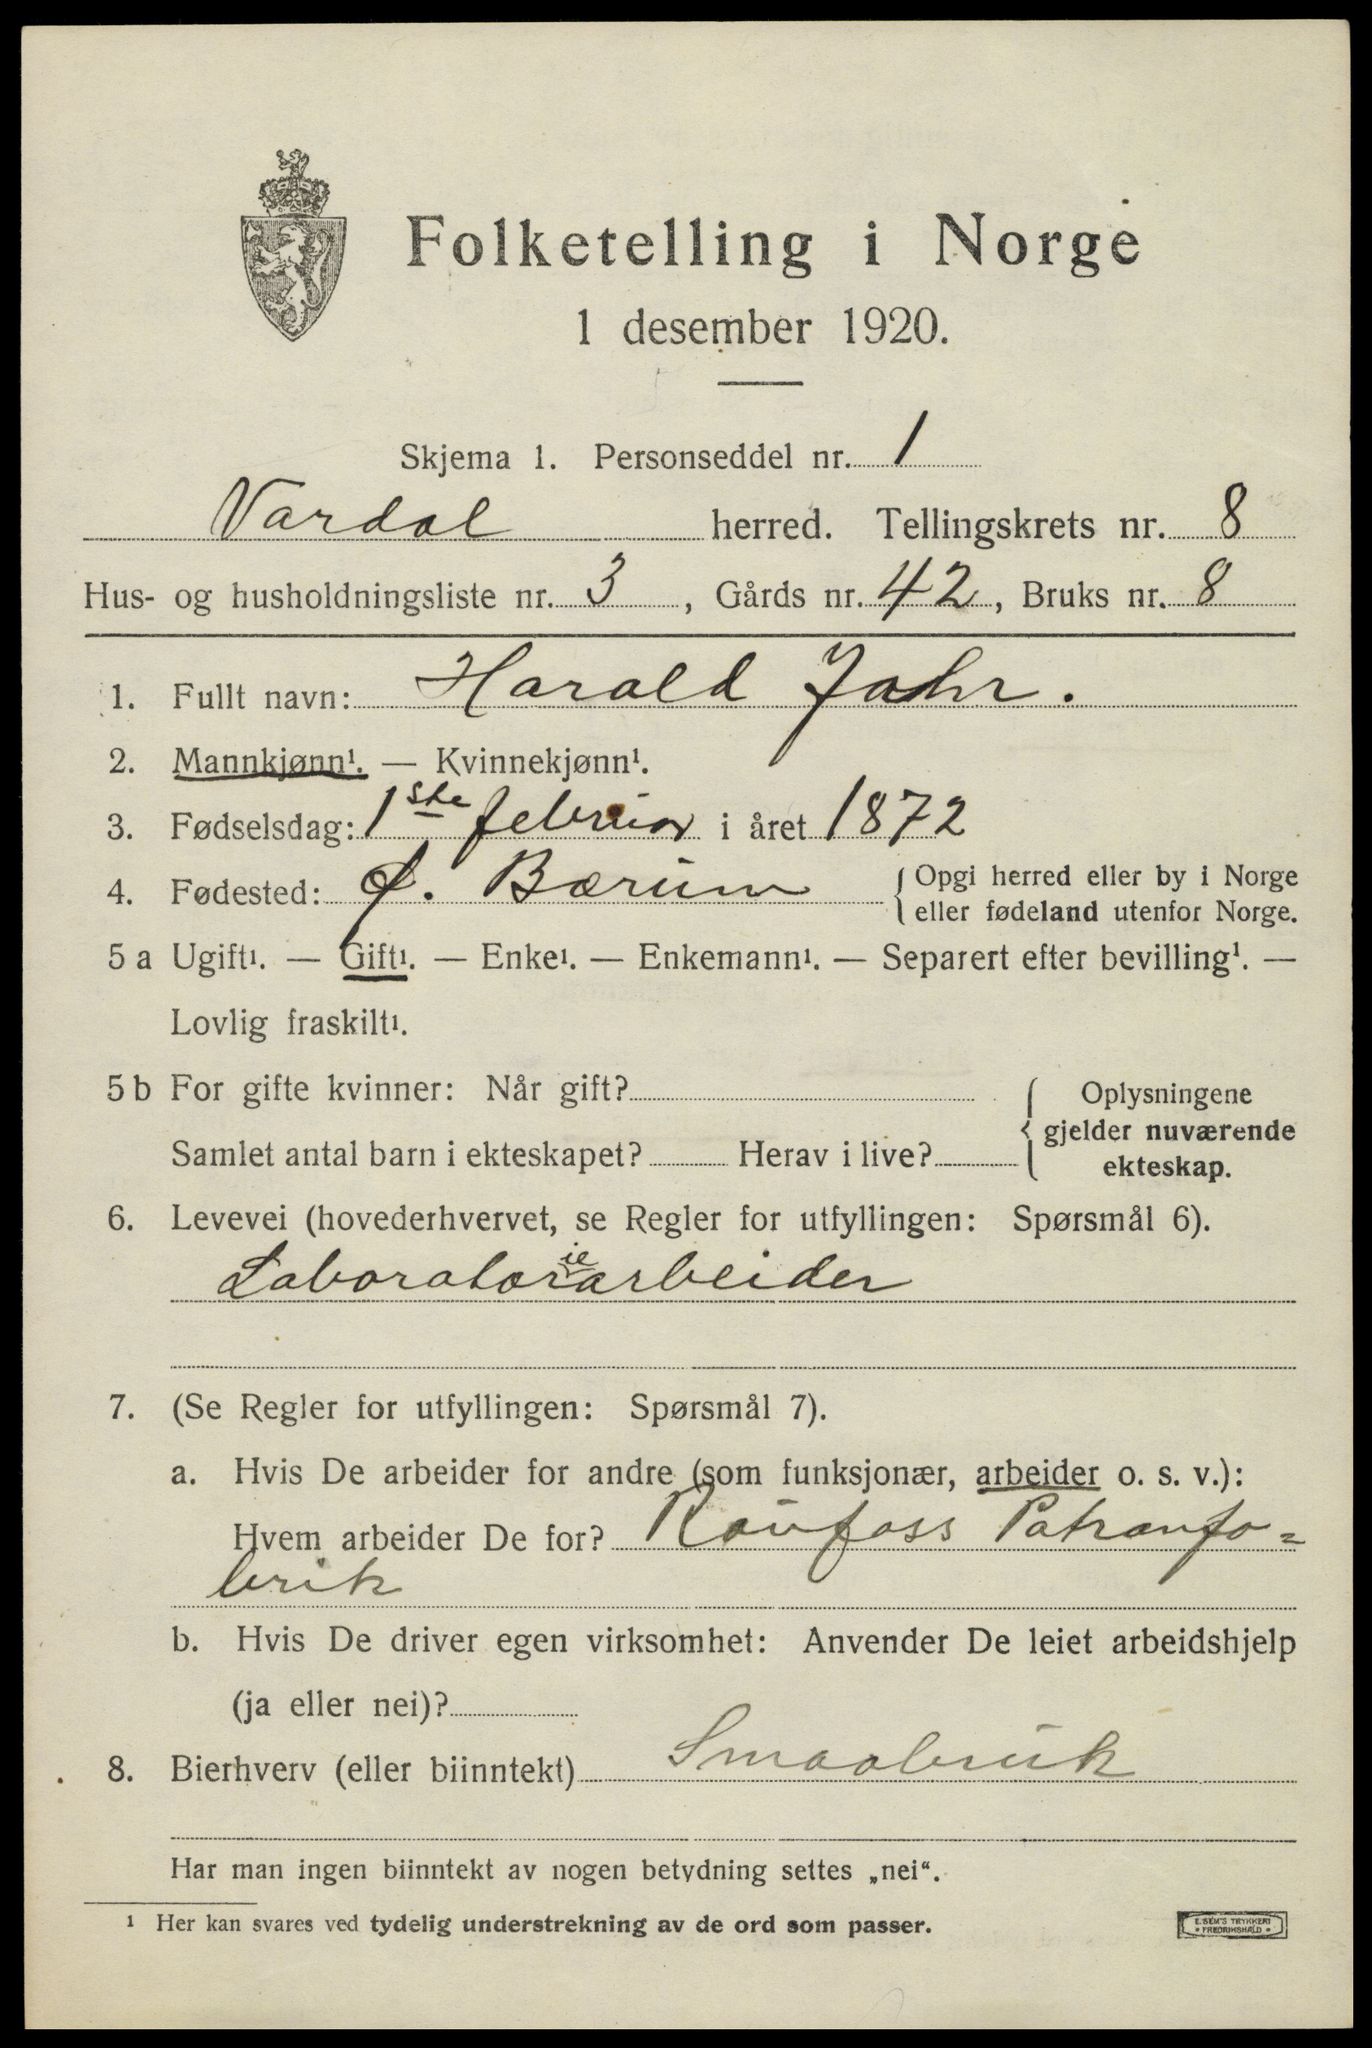 Folketelling i Norge
1 desember 1920.
Skjema 1. Personseddel nr. 1
Vardal herred. Tellingskrets nr. 8
Hus- og husholdningsliste nr. 3, Gårds nr. 42, Bruks nr. 8
1. Fullt navn: Harald Jahr.
2. Mannkjønn¹. — Kvinnekjønn¹.
3. Fødselsdag: 1ste februar i året 1872
4. Fødested: Ø. Bærum { Opgi herred eller by i Norge
eller fødeland utenfor Norge.
5 a Ugift¹. — Gift¹. — Enke¹. — Enkemann¹. — Separert efter bevilling¹. —
Lovlig fraskilt¹.
5 b For gifte kvinner: Når gift?
Samlet antal barn i ekteskapet? Herav i live?
{ Oplysningene
gjelder nuværende
ekteskap.
6. Levevei (hovederhvervet, se Regler for utfyllingen: Spørsmål 6).
Laboratoriearbeider
7. (Se Regler for utfyllingen: Spørsmål 7).
a. Hvis De arbeider for andre (som funksjonær, arbeider o. s. v.):
Hvem arbeider De for? Raufoss Patronfa=
brik
b. Hvis De driver egen virksomhet: Anvender De leiet arbeidshjelp
(ja eller nei)?
8. Bierhverv (eller biinntekt) Smaabruk
Har man ingen biinntekt av nogen betydning settes „nei“.
¹ Her kan svares ved tydelig understrekning av de ord som passer.
E. SEM'S TRYKKERI
* FREDRIKSHALD *